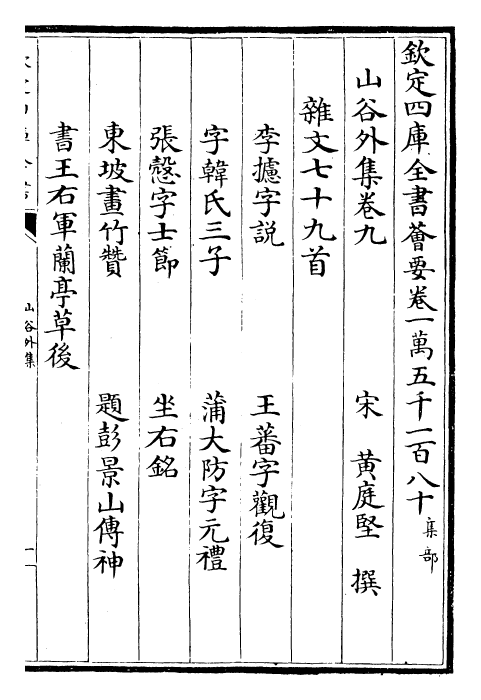 欽定四庫全書薈要卷一萬五千一百八十 集部
山谷外集卷九
宋 黃庭堅 撰
雜文七十九首
李攄字説
王蕃字觀復
字韓氏三子
蒲大防字元禮
張愨字士節
坐右銘
東坡畫竹贊
題彭景山傳神
書王右軍蘭亭草後
山谷外集
一